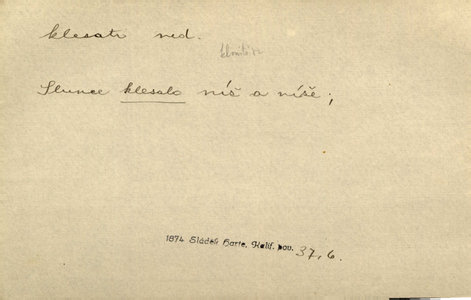 klesati ned.
Slunce klesalo níš a níše;
1874 Sládek Harte, Kalif. pov. 37, 6.